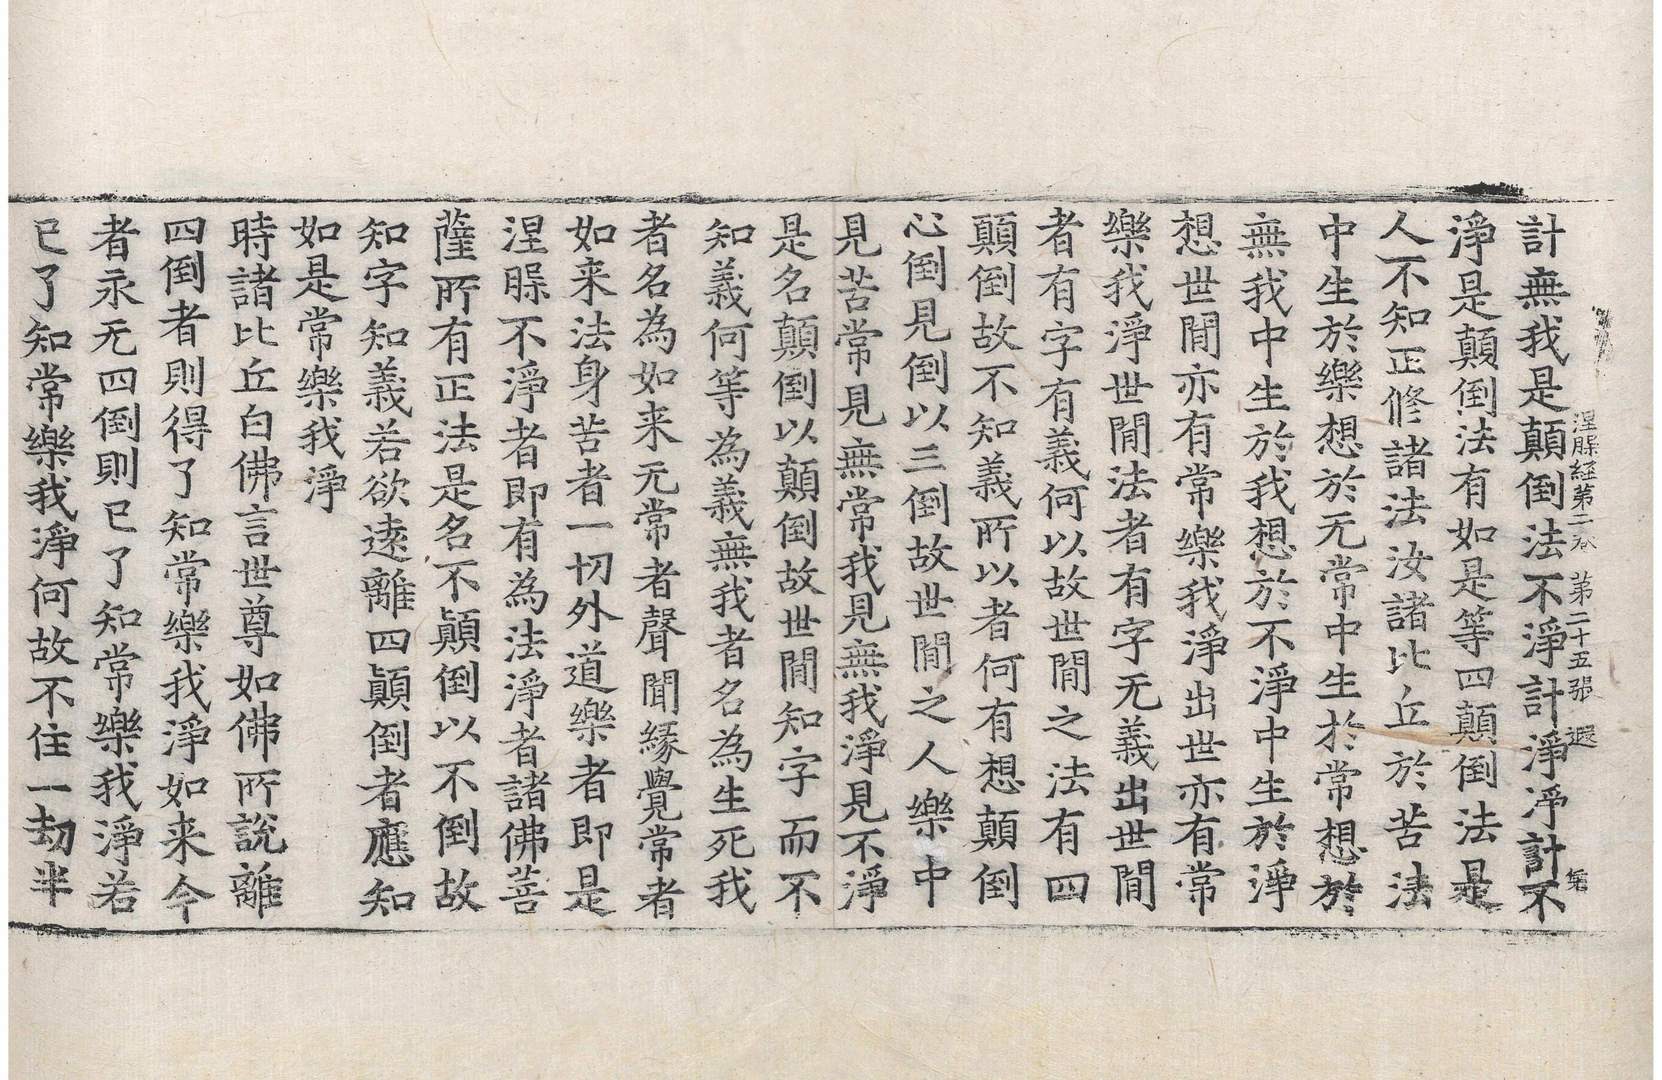 涅槃經第二卷　第二十五張　遐
計無我是顛倒法不淨計淨淨計不
淨是顛倒法有如是等四顛倒法是
人不知正修諸法汝諸比丘於苦法
中生於樂想於无常中生於常想於
無我中生於我想於不淨中生於淨
想世閒亦有常樂我淨出世亦有常
樂我淨世閒法者有字无義出世閒
者有字有義何以故世閒之法有四
顛倒故不知義所以者何有想顛倒
心倒見倒以三倒故世閒之人樂中
見苦常見無常我見無我淨見不淨
是名顛倒以顛倒故世閒知字而不
知義何等為義無我者名為生死我
者名為如来无常者聲聞緣覺常者
如来法身苦者一切外道樂者即是
涅槃不淨者即有為法淨者諸佛菩
薩所有正法是名不顛倒以不倒故
知字知義若欲遠離四顛倒者應知
如是常樂我淨
時諸比丘白佛言世尊如佛所說離
四倒者則得了知常樂我淨如来今
者永无四倒則已了知常樂我淨若
已了知常樂我淨何故不住一劫半